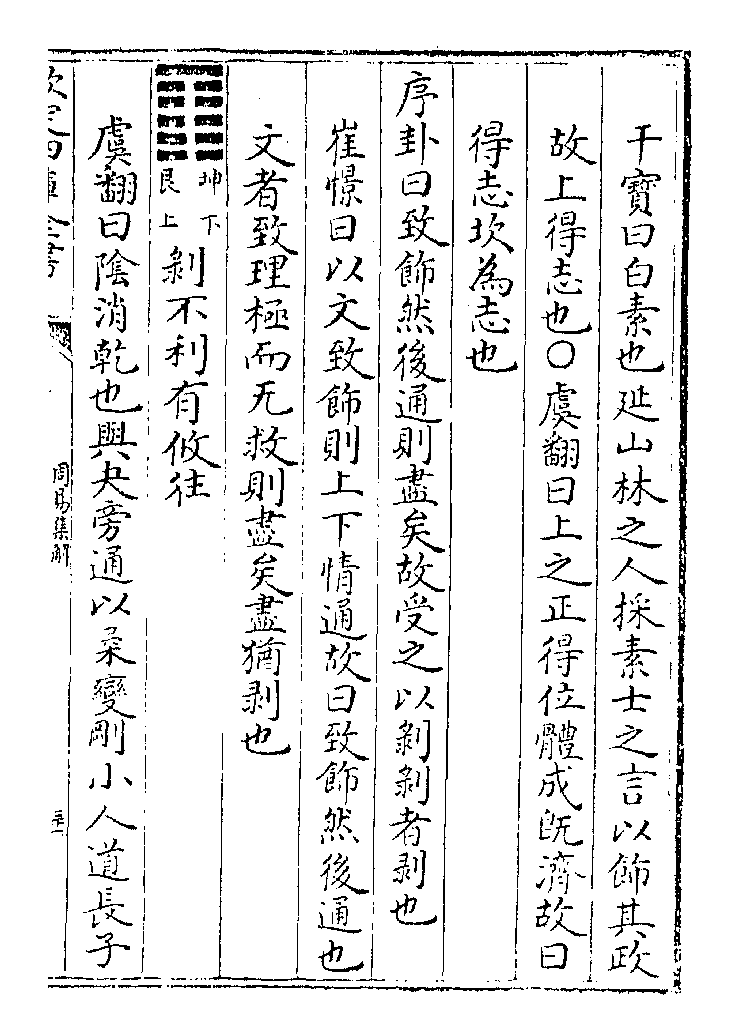 干寶曰白素也延山林之人採素士之言以飾其政
故上得志也○虞翻曰上之正得位體成既濟故曰
得志坎為志也
序卦曰致飾然後通則盡矣故受之以剝剝者剥也
崔憬曰以文致飾則上下情通故曰致飾然後通也
文者致理極而无救則盡矣盡猶剥也
坤下
艮上
剝不利有攸往
虞翻曰陰消乾也與夬旁通以柔變剛小人道長子
欽定四庫全書
周易集解